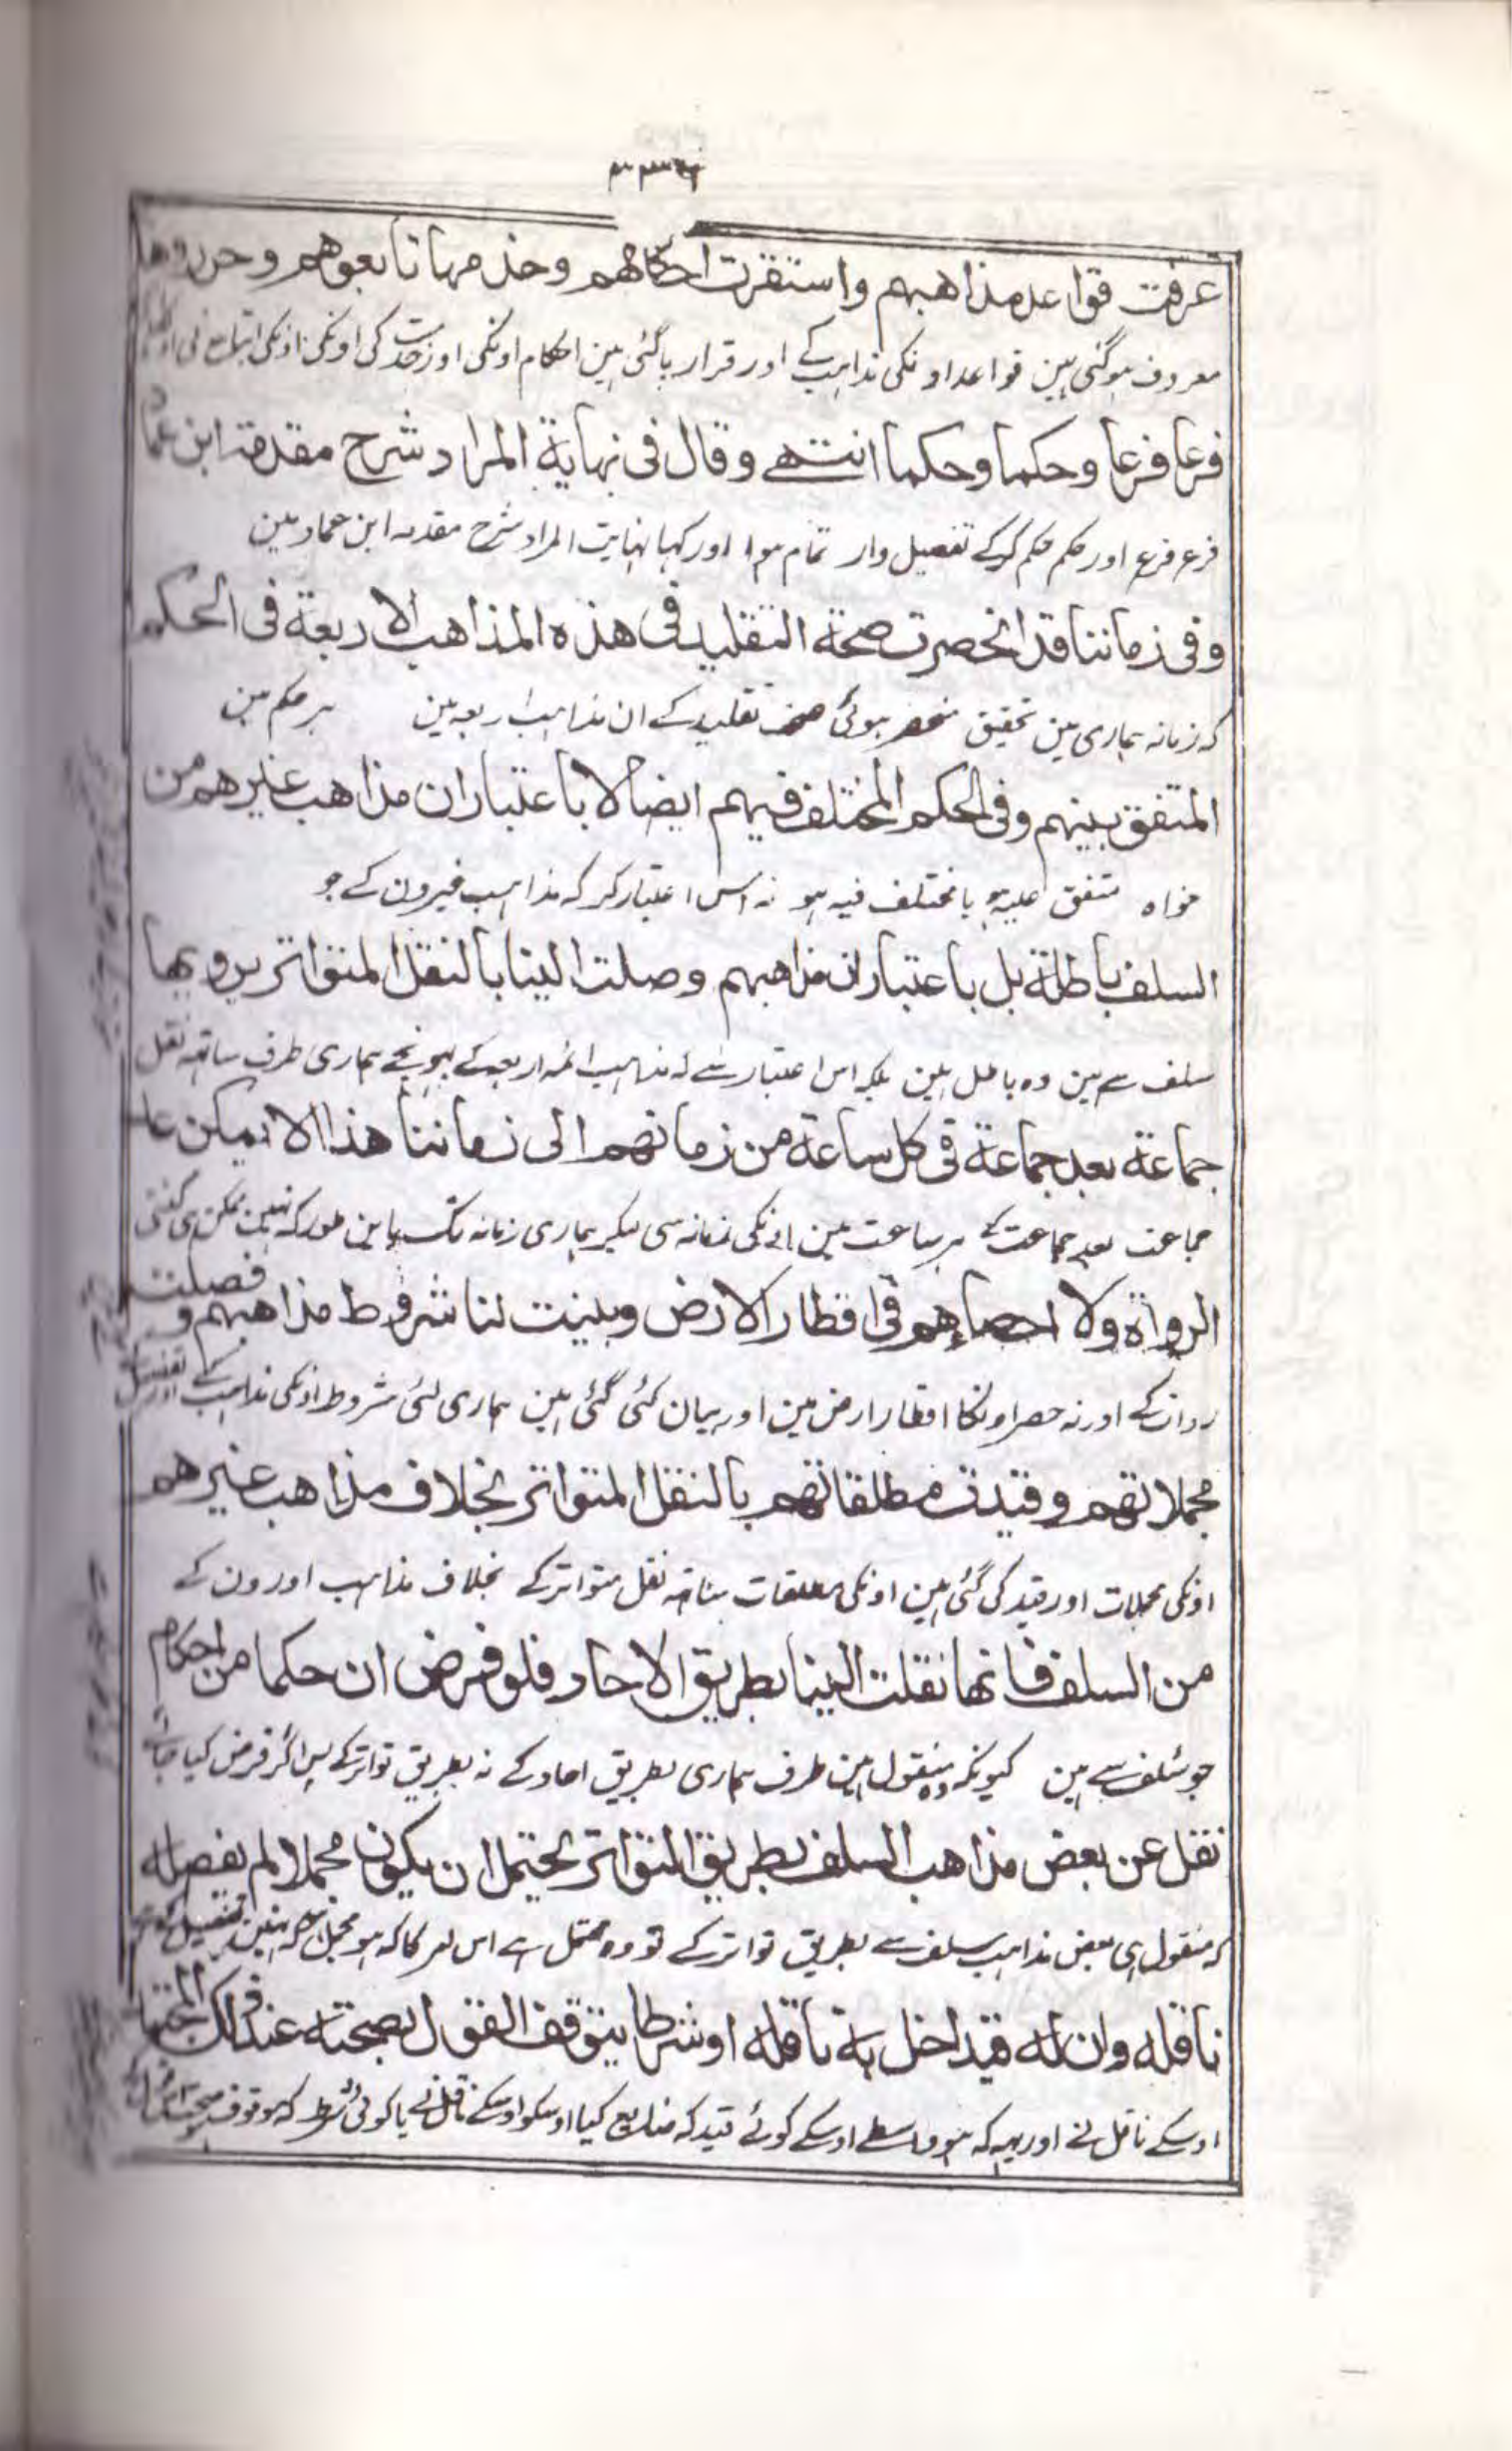 عرفت قواعد مذاهبهم واستقرت احكامهم وخدمها تابعوهم وحرروها
معروف ہوگئی ہین قواعد اونکی مذاہب کے اور قرار پاگئی ہین احکام اونکی اور خدمت کی اونکی اونکی اتباع نی اور
فرعا فرعا وحكما وحكما انتهے وقال فى نهاية المراد شرح مقدمة ابن عماد
فرع فرع اور حکم حکم کرکے تفصیل وار تمام ہوا اور کہا نہایت المراد شرح مقدمہ ابن عماد مین
وفى زماننا قد انحصرت صحة التقليد فى هذه المذاهب الاربعة فى الحكم
کہ زمانہ ہماری مین تحقیق منحصر ہوئی صحت تقلید کے ان مذاہب اربعہ مین ہر حکم مین
المتفق بينهم وفى الحكم المختلف فيهم ايضا لا باعتبار ان مذاهب غيرهم من
خواہ متفق علیہ ہو یا مختلف فیہ ہو نہ اس اعتبار کر کہ مذاہب غیرون کے جو
السلف باطلة بل باعتبار ان مذاهبهم وصلت الينا بالنقل المتواتر يرويها
سلف سے ہین وہ باطل ہین بلکہ اس اعتبار سے کہ مذاہب ائمہ اربعہ کے پہونچے ہماری طرف ساتھہ نقل
جماعة بعد جماعة فى كل ساعة من زمانهم الى زماننا هذا الا يمكن عد
جماعت بعد جماعت کے ہر ساعت مین انکی زمانہ سی لیکر ہماری زمانہ تک باین طور کہ نہین ممکن ہی گنتی
الرواة ولا احصاءهم فى اقطار الارض وبينت لنا شروط مذاهبهم وفصلت
روات کے اور نہ حصر اونکا اقطار ارض مین اور بیان کئی گئی ہین ہماری لئی شروط اونکی مذاہب کے اور تفصیل
مجملاتهم وقيدت مطلقاتهم بالنقل المتواتر بخلاف مذاهب غيرهم
اونکی مجملات اور قید کی گئی ہین اونکی مطلقات ساتھہ نقل متواتر کے بخلاف مذاہب اورون کے
من السلف فانها نقلت الينا بطريق الاحاد فلو فرض ان حكما من احكام
جو سلف سے ہین کیونکہ وہ منقول ہین طرف ہماری بطریق احاد کے نہ بطریق تواتر کے پس اگر فرض کیا جائے
نقل عن بعض مذاهب السلف بطريق التواتر يحتمل ان يكون مجملا لم يفصله
کہ منقول ہی بعض مذاہب سلف سے بطریق تواتر کے تو وہ محتمل ہے اس امر کا کہ ہو مجمل کہ نہین تفصیل
ناقله وان له قيدا اخل به ناقله او شرطا يتوقف القول بصحته عند ذلك
اوسکے ناقل نے اور یہہ کہ ہو واسطے اوسکے کوئے قید کہ ضایع کیا اوسکو اوسکے ناقل نے یا کوئی شرط کہ موقوف